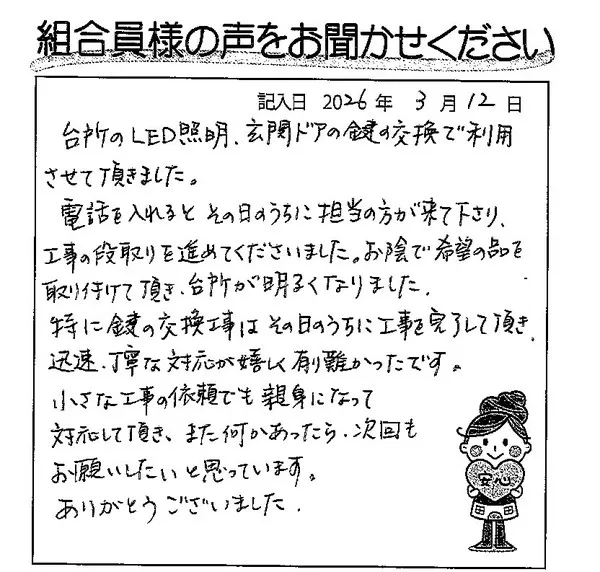 組合員様の声をお聞かせください
記入日 2026年 3月12日
台所のLED照明、玄関ドアの鍵の交換で利用
させて頂きました。
電話を入れると その日のうちに 担当の方が来て下さり、
工事の段取りを進めてくださいました。お陰で希望の品を
取り付けて頂き、台所が明るくなりました。
特に鍵の交換工事は その日のうちに工事を完了して頂き、
迅速、丁寧な対応が嬉しく有り難かったです。
小さな工事の依頼でも 親身になって
対応して頂き、また何かあったら、次回も
お願いしたいと思っています。
ありがとうございました。
安心